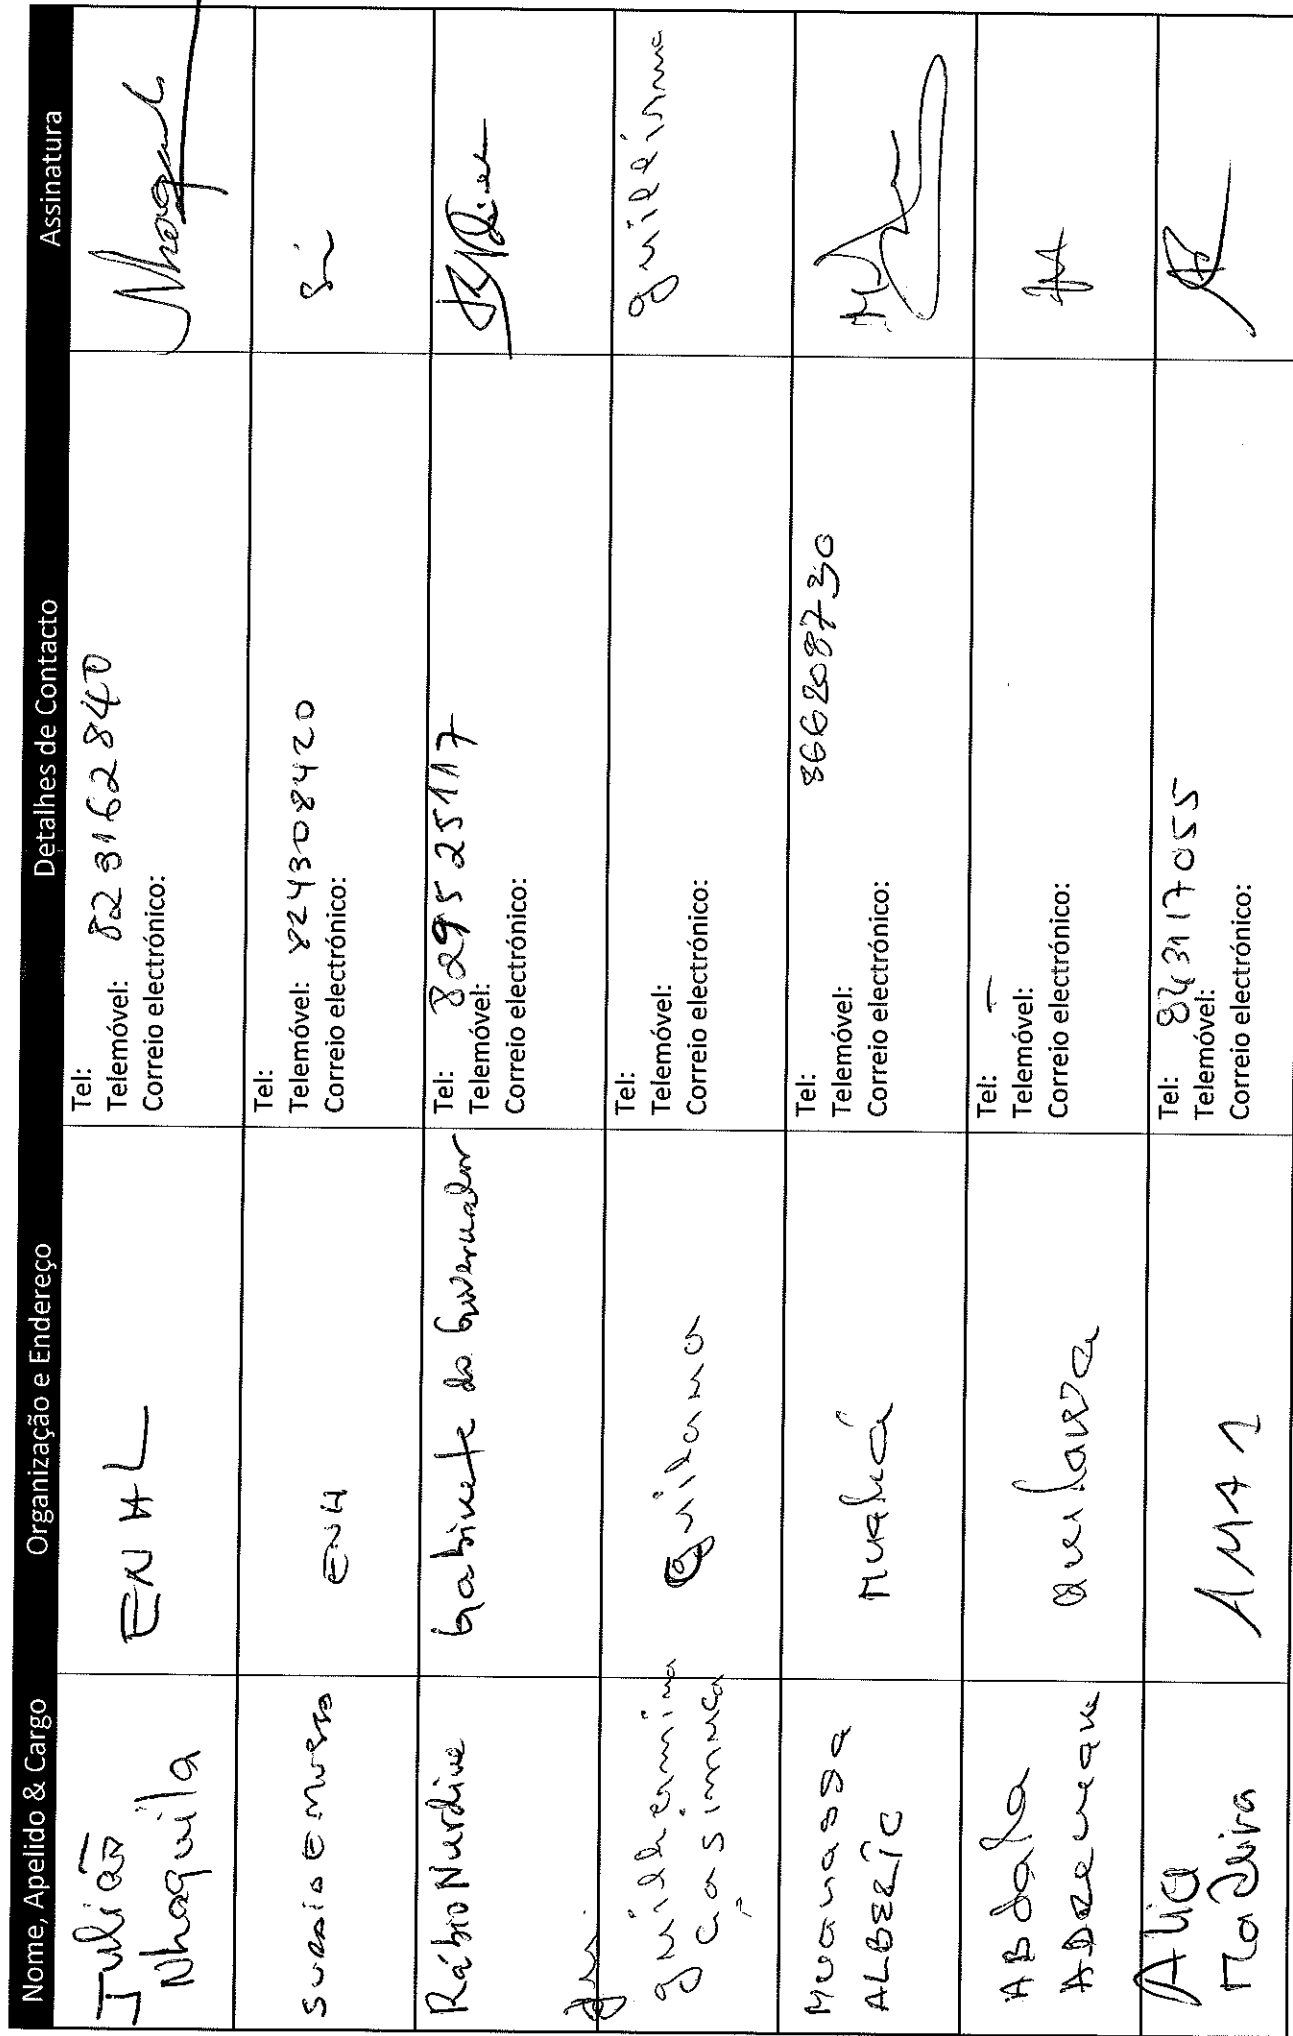 Nome, Apelido & Cargo Organização e Endereço Detalhes de Contacto Assinatura
Julião
Nhaquila
ENHL
Tel:
Telemóvel: 823162840
Correio electrónico:
ENH
Tel:
Telemóvel: 824308420
Correio electrónico:
Rábio Nurdine
Gabinete do Governador
Tel: 829525117
Telemóvel:
Correio electrónico:
guilhermina
casimuca
Quilama
Tel:
Telemóvel:
Correio electrónico:
Muanassa
Tel:
Telemóvel: 866208730
Correio electrónico:
ABdala
Tel: -
Telemóvel:
Correio electrónico:
Alice
Madeira
AMA1
Tel: 843117055
Telemóvel:
Correio electrónico: